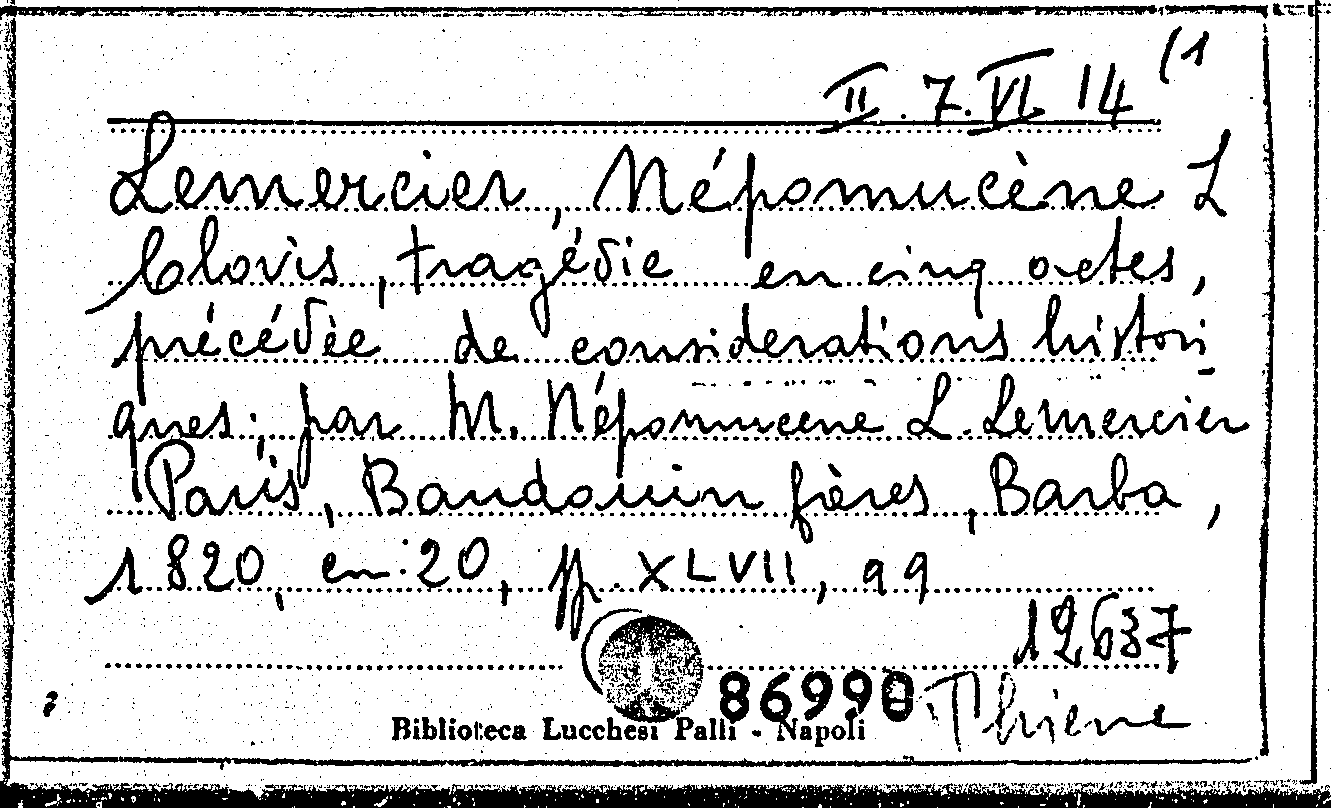 II. 7. VI. 14 (1
Lemercier, Népomucène L
Clovis, tragédie en cinq actes,
précédée de considerations histori
ques; par M. Népomucene L. Lemercier
Paris, Baudouin frères, Barba,
1820, in-20, pp. XLVII, 99
12637
86990
Thiene
Biblioteca Lucchesi Palli - Napoli